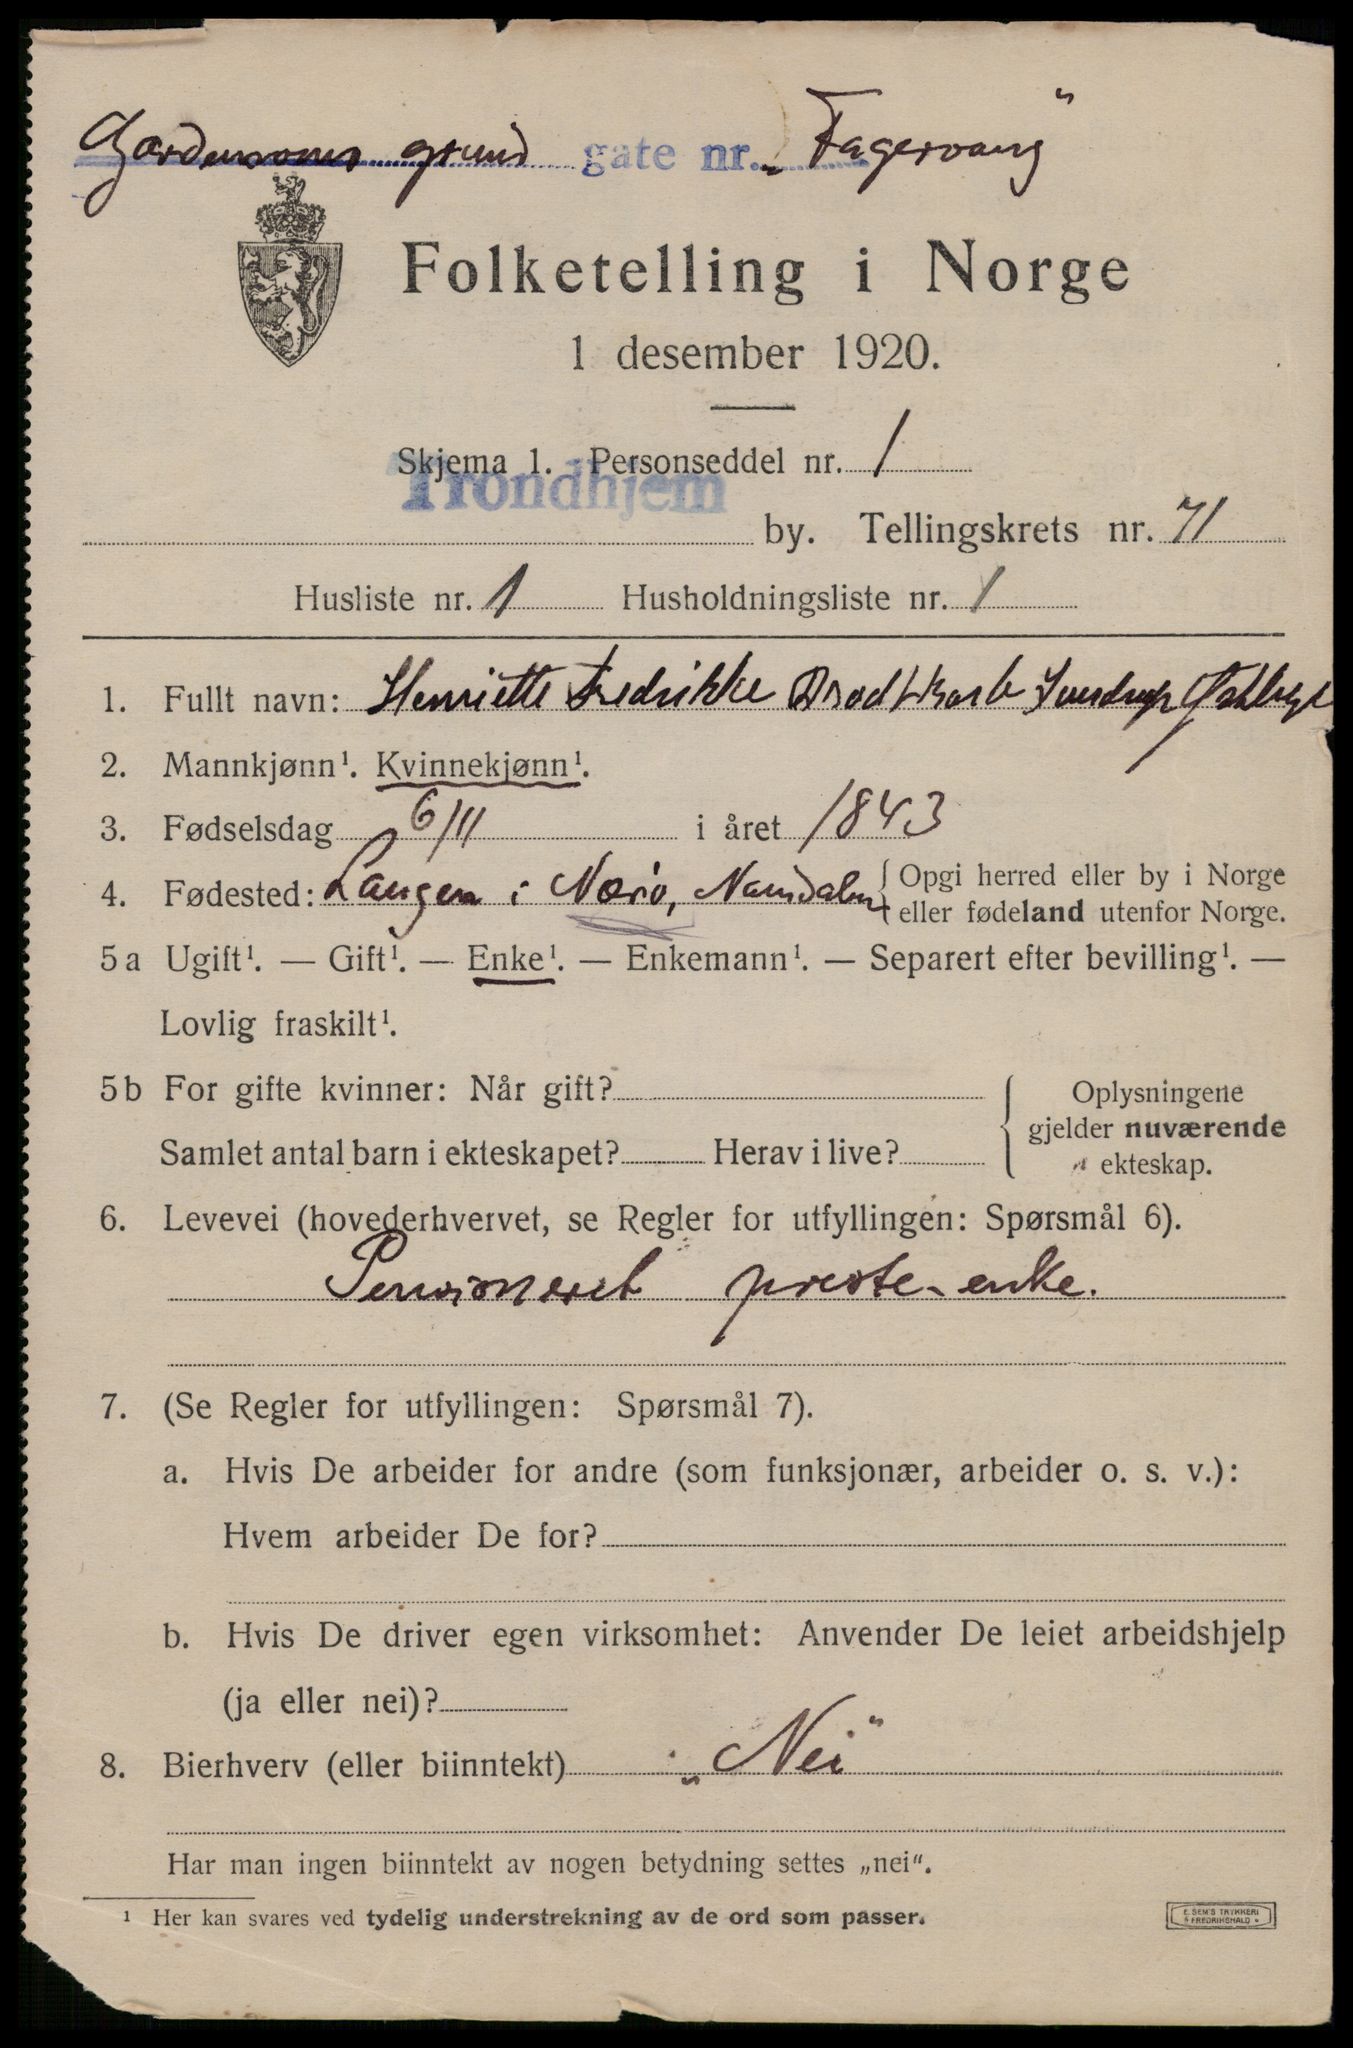 grund gate nr. „Fagervang"
Folketelling i Norge
1 desember 1920.
Skjema 1. Personseddel nr. 1
Trondhjem by. Tellingskrets nr. 71
Husliste nr. 1 Husholdningsliste nr. 1
1. Fullt navn: Henriette Fredrikke Sverdrup
2. Mannkjønn¹. Kvinnekjønn¹.
3. Fødselsdag 6/11 i året 1843
4. Fødested: i Nærö, Namdalen { Opgi herred eller by i Norge
eller fødeland utenfor Norge.
5 a Ugift¹. — Gift¹. — Enke¹. — Enkemann¹. — Separert efter bevilling¹. —
Lovlig fraskilt¹.
5 b For gifte kvinner: Når gift?
Samlet antal barn i ekteskapet? Herav i live?
{ Oplysningene
gjelder nuværende
ekteskap.
6. Levevei (hovederhvervet, se Regler for utfyllingen: Spørsmål 6).
Pensioneret preste-enke.
7. (Se Regler for utfyllingen: Spørsmål 7).
a. Hvis De arbeider for andre (som funksjonær, arbeider o. s. v.):
Hvem arbeider De for?
b. Hvis De driver egen virksomhet: Anvender De leiet arbeidshjelp
(ja eller nei)?
8. Bierhverv (eller biinntekt) „Nei"
Har man ingen biinntekt av nogen betydning settes „nei".
¹ Her kan svares ved tydelig understrekning av de ord som passer.
E. SEM'S TRYKKERI
FREDRIKSHALD